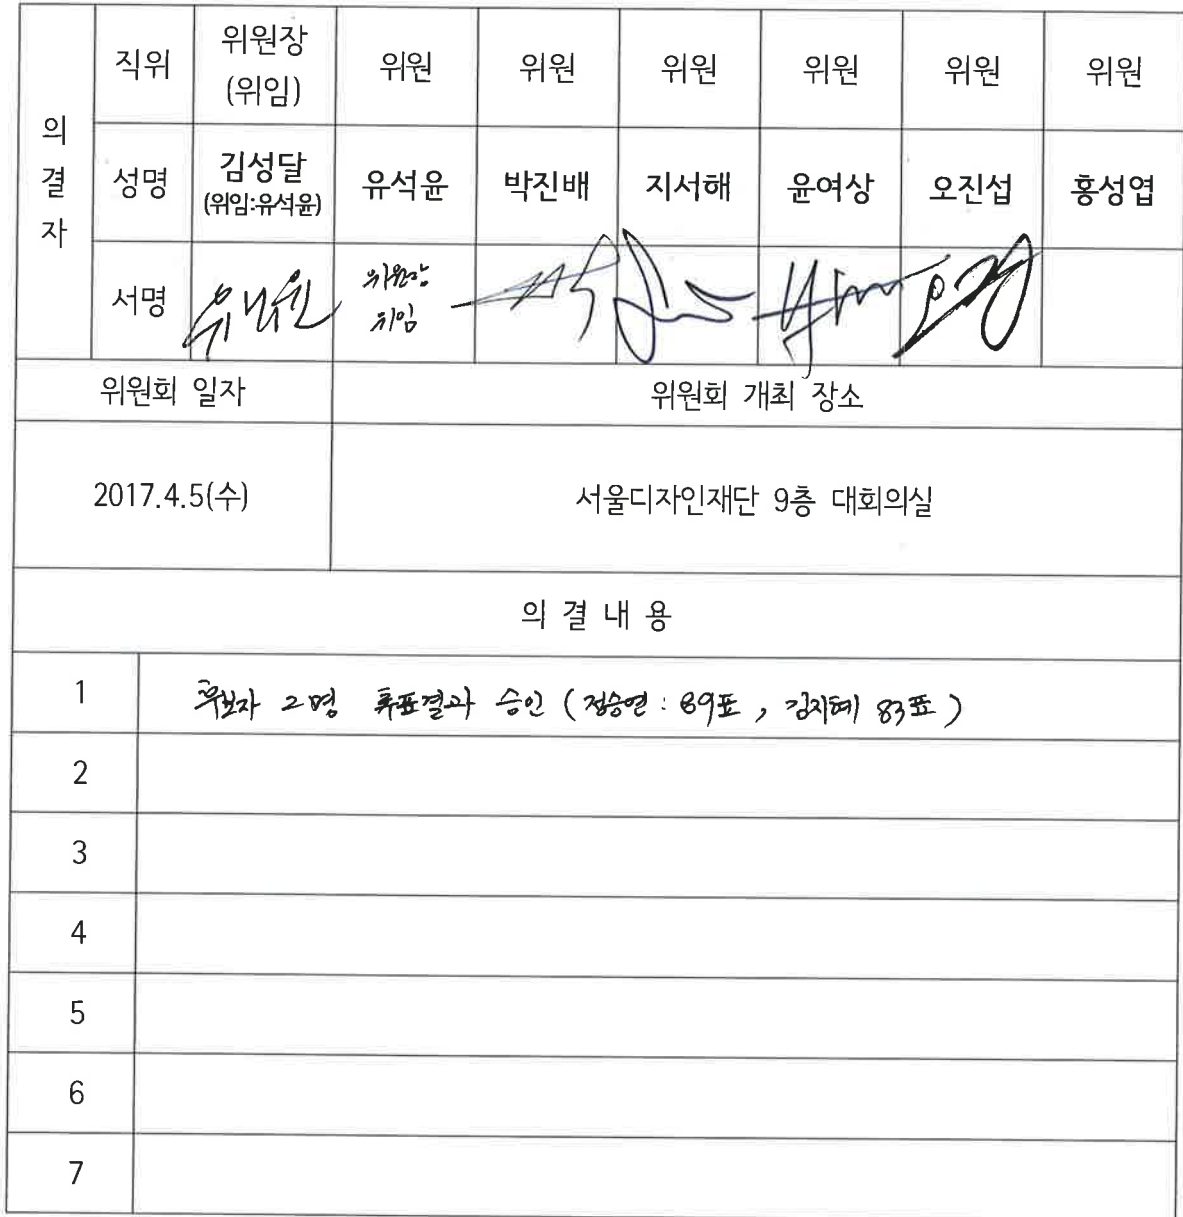 의결자
직위 위원장 (위임) 위원 위원 위원 위원 위원 위원
성명 김성달 (위임:유석윤) 유석윤 박진배 지서해 윤여상 오진섭 홍성엽
서명 유석윤 위원장 위임
위원회 일자 위원회 개최 장소
2017.4.5(수) 서울디자인재단 9층 대회의실
의 결 내 용
1 후보자 2명 투표결과 승인 (정승연 : 89표 , 김지혜 83표 )
2
3
4
5
6
7